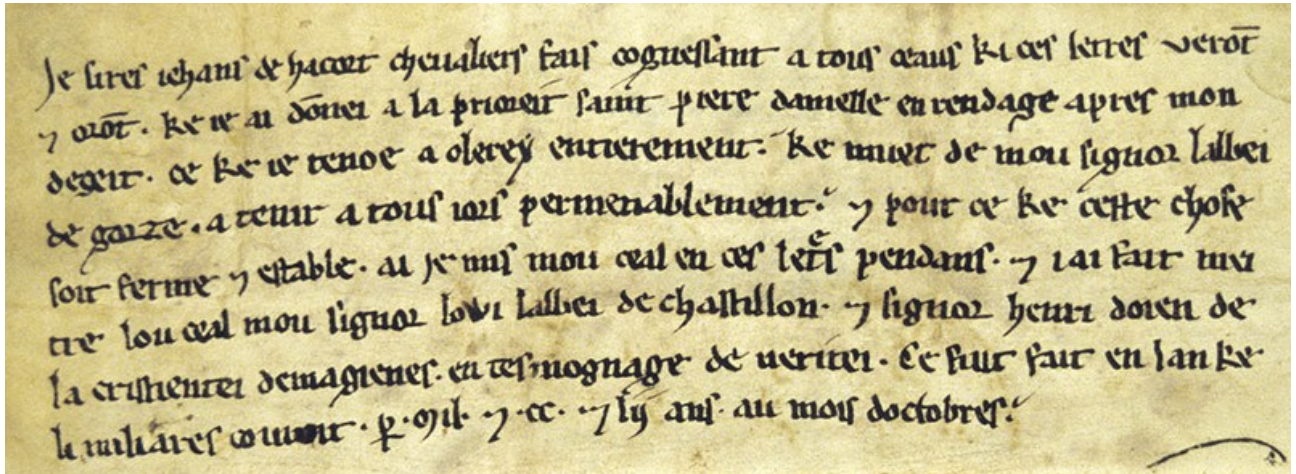 Je sires iehans de hacort cheualiers fais cognessant a tous ceaus ki ces letres verot̄
⁊ orot̄. ke ie ai dōnei a la prioreit saint piere damelle en rendage apres mon
degeit. ce ke ie tenoe a olerey entierement. ke muet de mou signor labbei
de gorze. a tenir a tous iors permenablement. ⁊ pour ce ke ceste chose
soit ferme ⁊ estable. ai je mis mou ceal en ces letres pendans. ⁊ i ai fait mei
tre lou ceal mou signor lowi labbei de chastillon. ⁊ signor henri doien de
la cristientei de magienes. en tesmognage de ueritei. Ce fuit fait en lan ke
li miliares couroit. ꝑ. mil. ⁊ .cc. ⁊ lij ans. au mois doctobres.